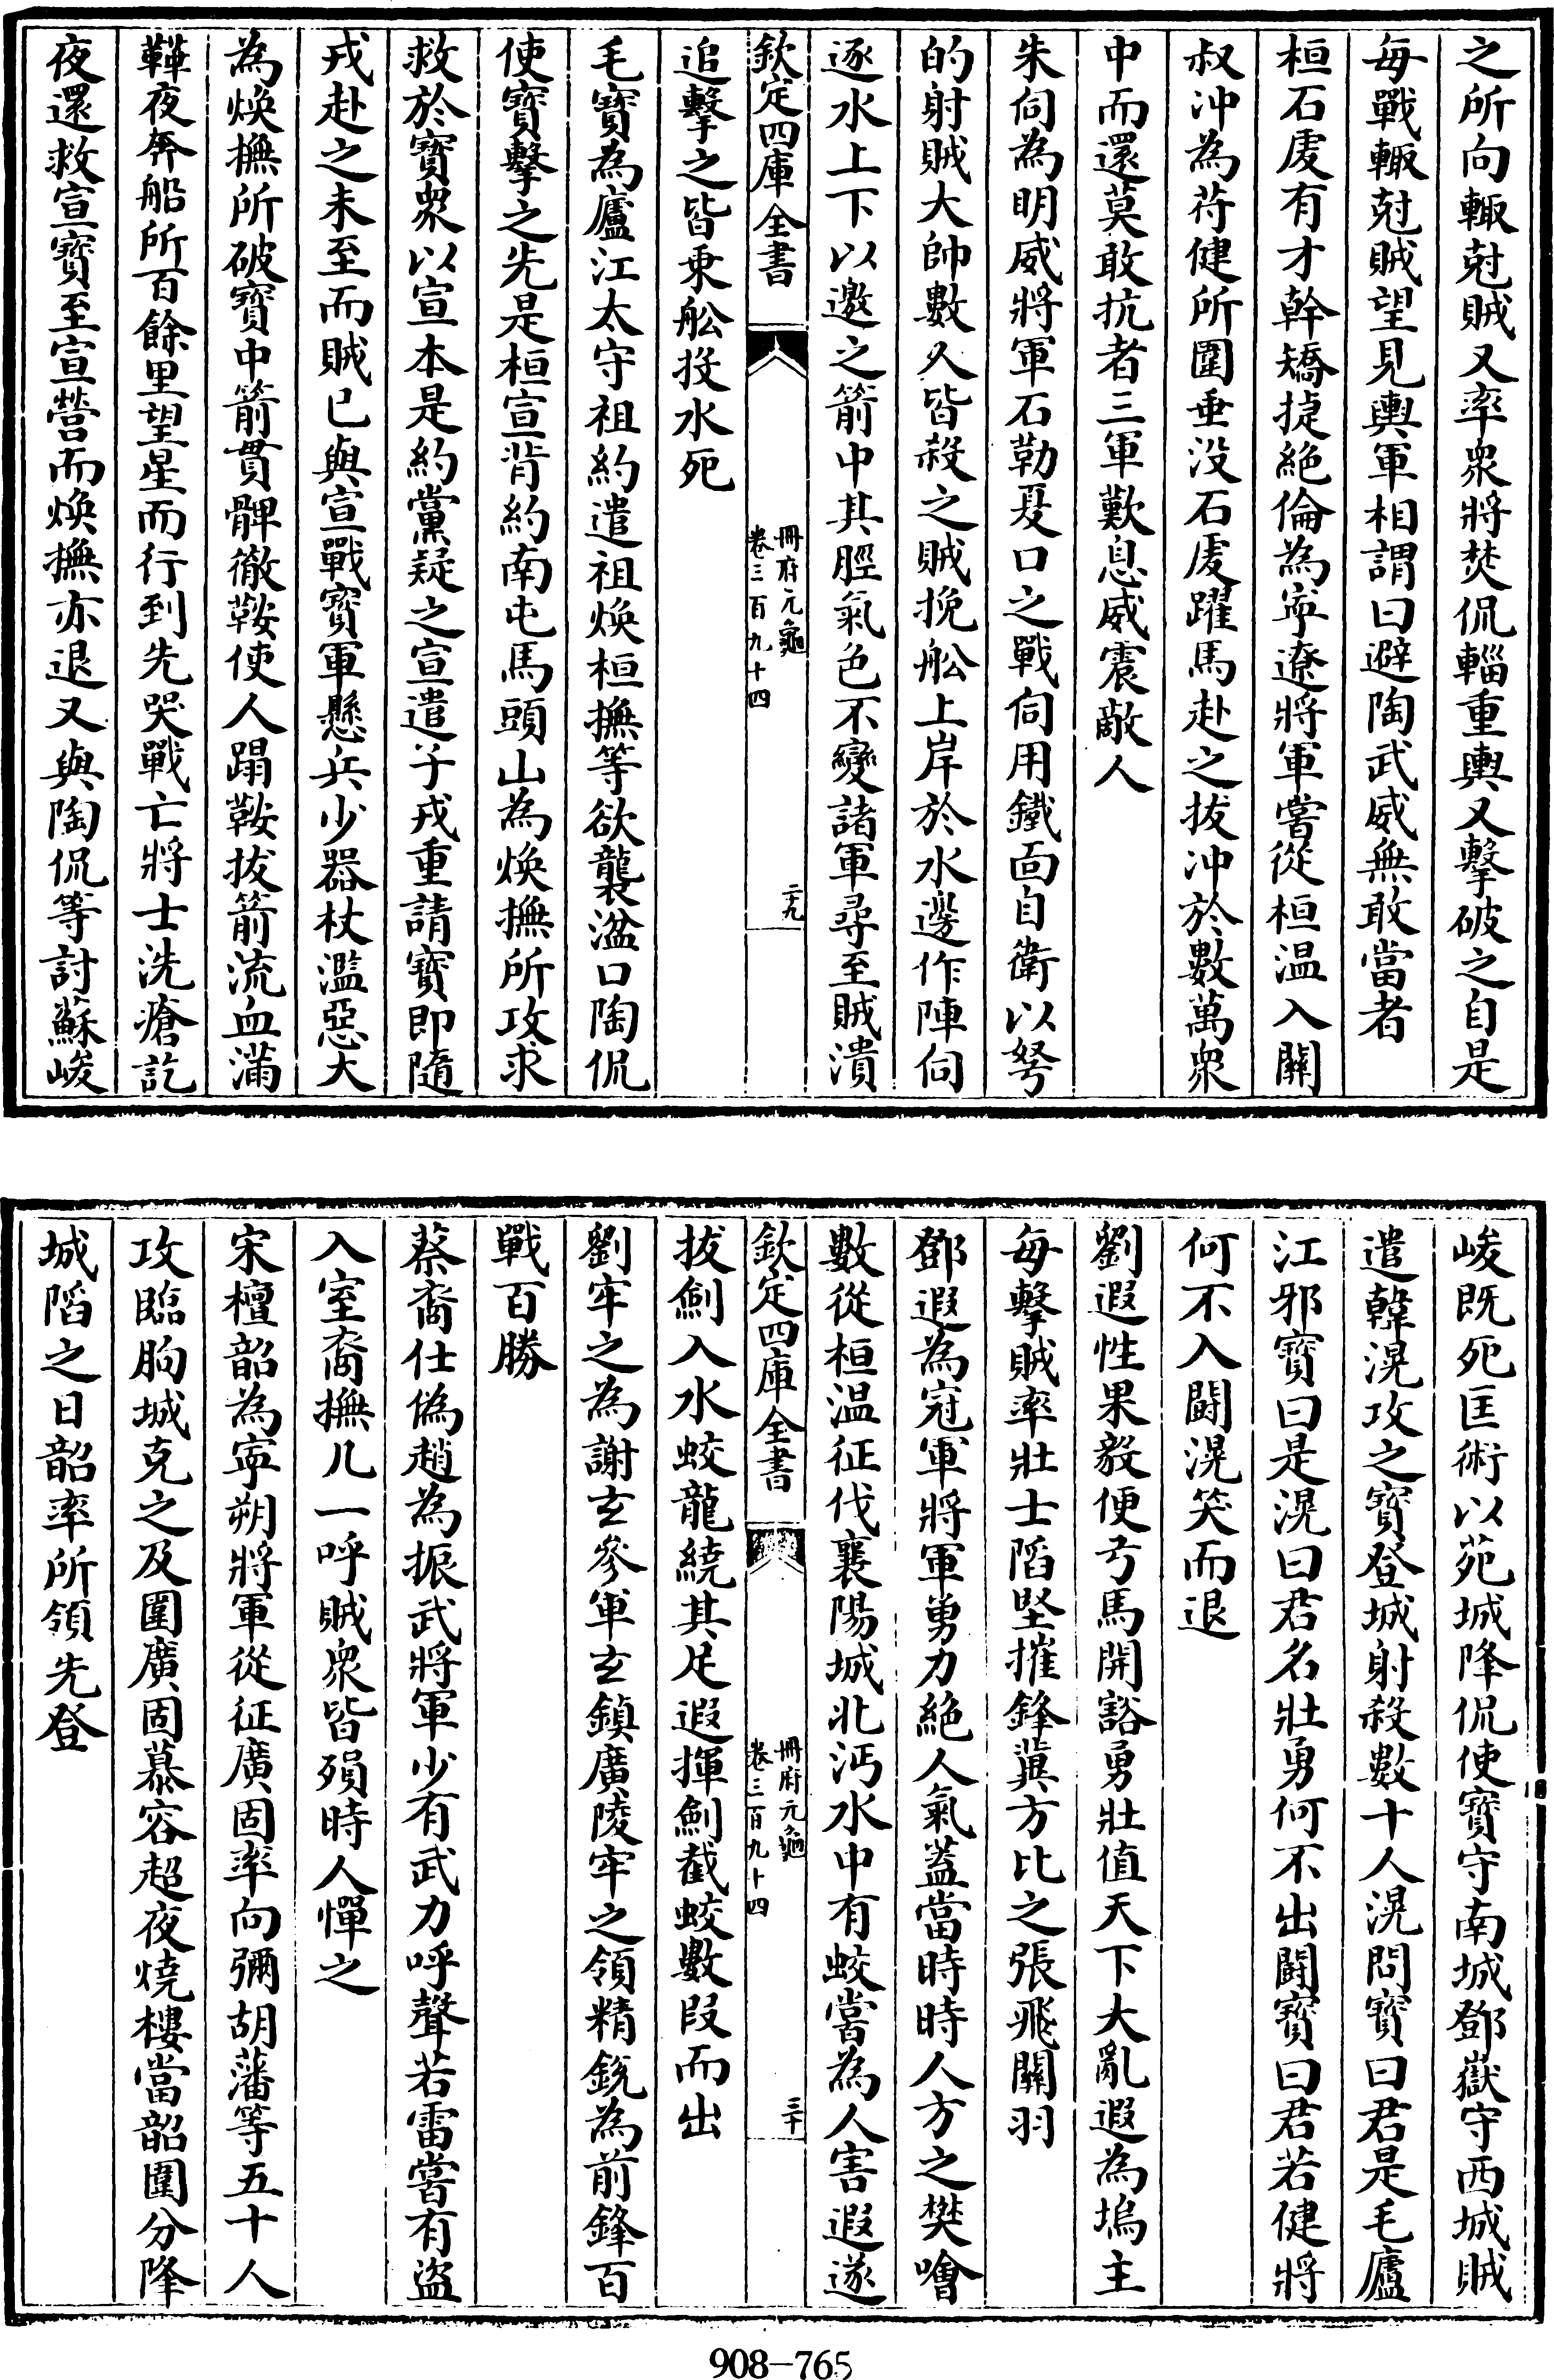 之所向輙尅賊又率衆將焚侃輜重輿又擊破之自是
每戰輙尅賊望見輿軍相謂曰避陶武威無敢當者
桓石虔有才幹矯捷絶倫為寧遼將軍嘗從桓温入關
叔沖為苻健所圍垂没石虔躍馬赴之拔沖於數萬衆
中而還莫敢抗者三軍歎息威震敵人
朱伺為明威將軍石勒夏口之戰伺用鐵面自衛以弩
的射賊大帥數人皆殺之賊挽舩上岸於水邊作陣伺
逐水上下以邀之箭中其脛氣色不變諸軍尋至賊潰
欽定四庫全書
冊府元龜
卷三百九十四
二十九
追擊之皆棄舩投水死
毛寶為廬江太守祖約遣祖煥桓撫等欲襲湓口陶侃
使寶擊之先是桓宣背約南屯馬頭山為煥撫所攻求
救於寶衆以宣本是約黨疑之宣遣子戎重請寶即隨
戎赴之未至而賊已與宣戰寶軍懸兵少器杖濫惡大
為煥撫所破寶中箭貫髀徹鞍使人蹋鞍拔箭流血滿
鞾夜奔船所百餘里望星而行到先哭戰亡將士洗瘡訖
夜還救宣寶至宣營而煥撫亦退又與陶侃等討蘇峻
峻既死匡術以苑城降侃使寶守南城鄧嶽守西城賊
遣韓滉攻之寶登城射殺數十人滉問寶曰君是毛廬
江邪寶曰是滉曰君名壯勇何不出鬭寶曰君若健將
何不入鬭滉笑而退
劉遐性果毅便弓馬開豁勇壯值天下大亂遐為塢主
每擊賊率壯士陷堅摧鋒冀方比之張飛關羽
鄧遐為冠軍將軍勇力絶人氣蓋當時時人方之樊噲
數從桓温征伐襄陽城北沔水中有蛟嘗為人害遐遂
欽定四庫全書
冊府元龜
卷三百九十四
三十
拔劍入水蛟龍繞其足遐揮劍截蛟數段而出
劉牢之為謝玄參軍玄鎮廣陵牢之領精鋭為前鋒百
戰百勝
蔡裔仕偽趙為振武將軍少有武力呼聲若雷嘗有盜
入室裔撫几一呼賊衆皆殞時人憚之
宋檀韶為寧朔將軍從征廣固率向彌胡藩等五十人
攻臨朐城克之及圍廣固慕容超夜燒樓當韶圍分降
城陷之日韶率所領先登
908-765